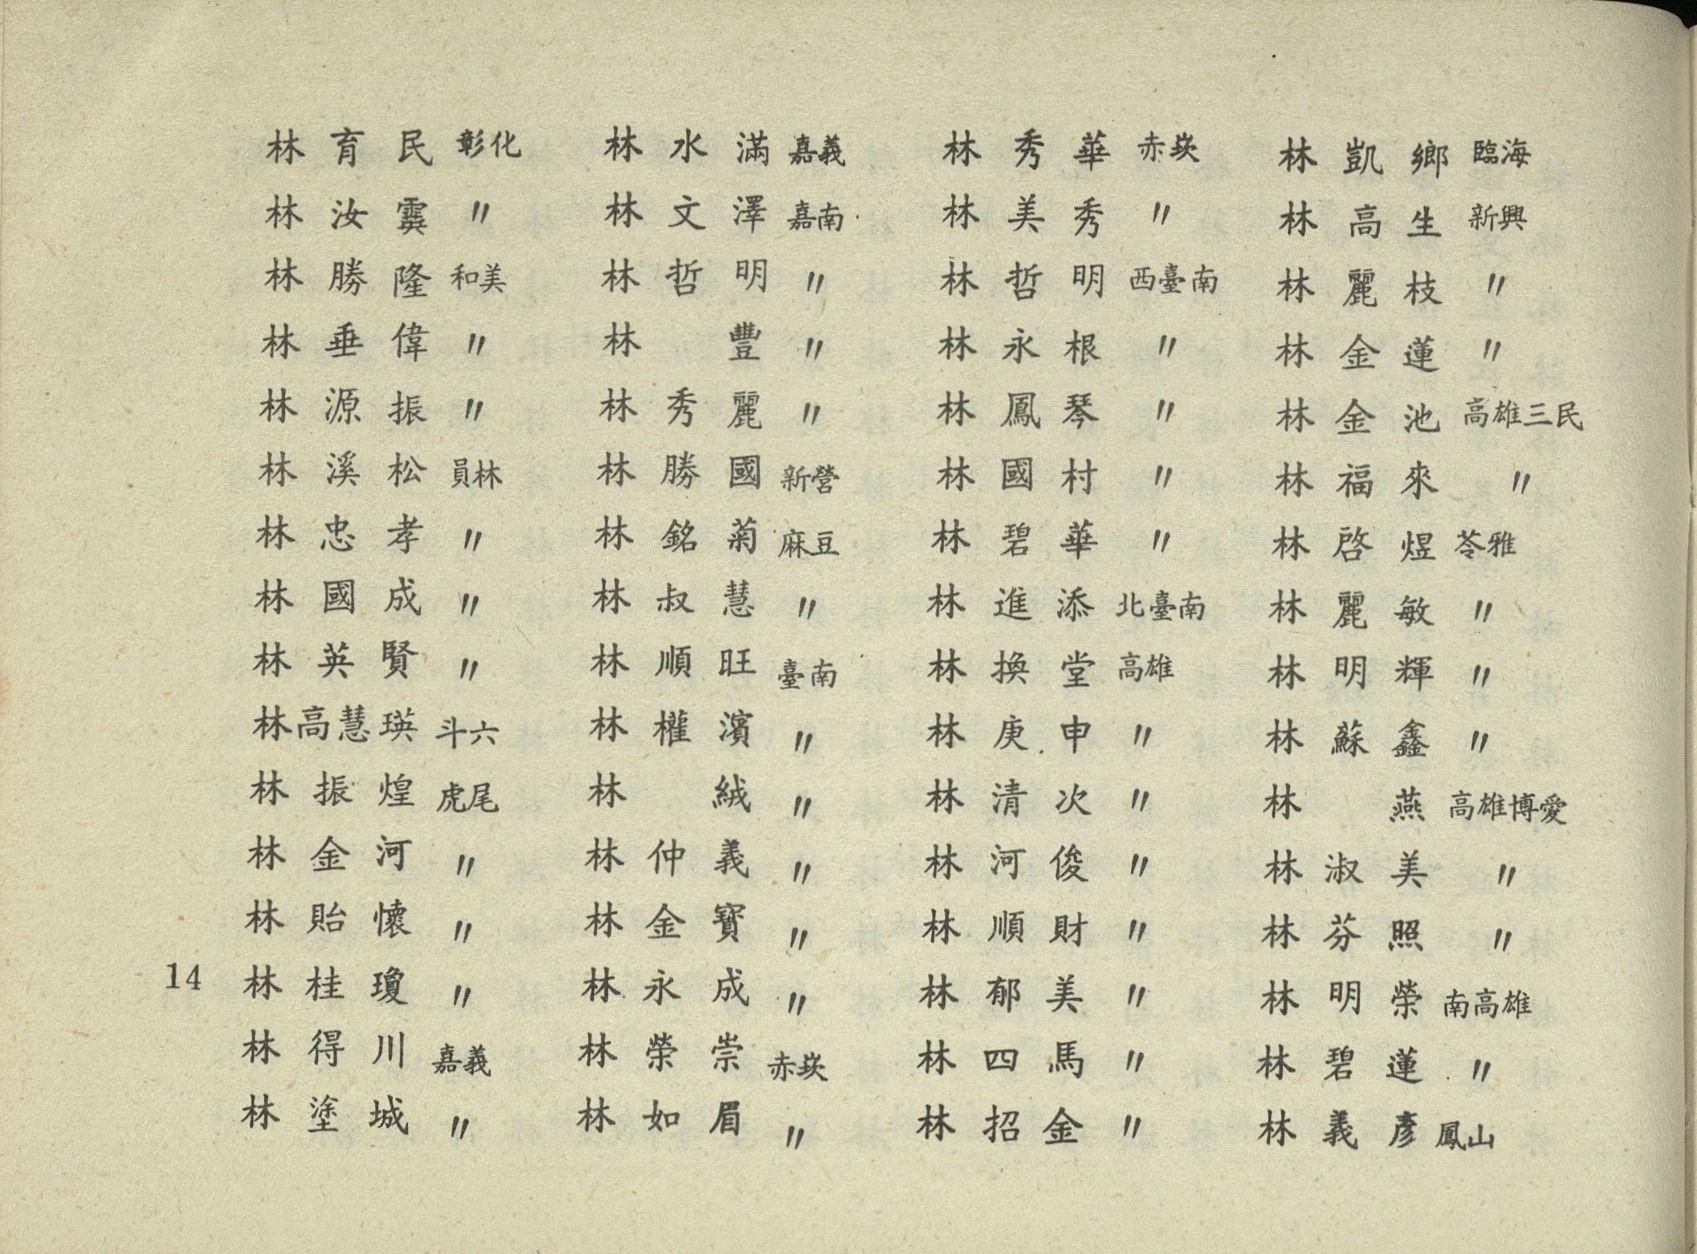 林育民 彰化
林汝霙 〃
林勝隆 和美
林垂偉 〃
林源振 〃
林溪松 員林
林忠孝 〃
林國成 〃
林英賢 〃
林高慧瑛 斗六
林振煌 虎尾
林金河 〃
林貽懷 〃
林桂瓊 〃
林得川 嘉義
林塗城 〃
林水滿 嘉義
林文澤 嘉南
林哲明 〃
林 豐 〃
林秀麗 〃
林勝國 新營
林銘菊 麻豆
林叔慧 〃
林順旺 臺南
林權濱 〃
林 絨 〃
林仲義 〃
林金寶 〃
林永成 〃
林榮崇 赤崁
林如眉 〃
林秀華 赤崁
林美秀 〃
林哲明 西臺南
林永根 〃
林鳳琴 〃
林國村 〃
林碧華 〃
林進添 北臺南
林換堂 高雄
林庚申 〃
林清次 〃
林河俊 〃
林順財 〃
林郁美 〃
林四馬 〃
林招金 〃
林凱鄉 臨海
林高生 新興
林麗枝 〃
林金蓮 〃
林金池 高雄三民
林福來 〃
林啓煜 苓雅
林麗敏 〃
林明輝 〃
林蘇鑫 〃
林 燕 高雄博愛
林淑美 〃
林芬照 〃
林明榮 南高雄
林碧蓮 〃
林義彥 鳳山
14